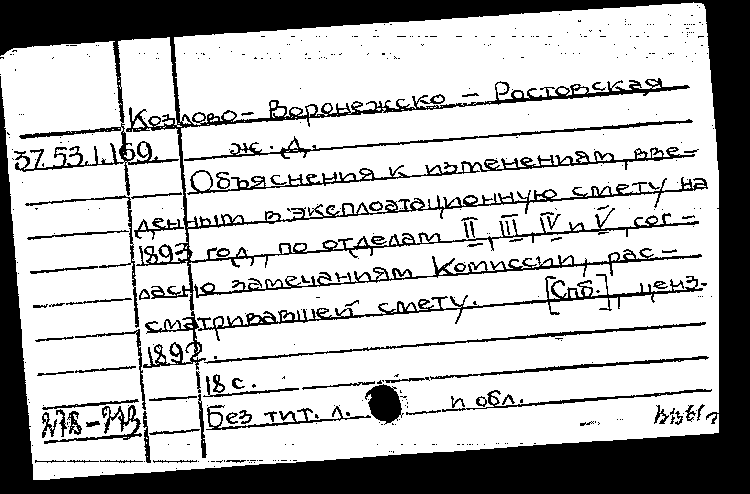 Козлово-Воронежско-Ростовская
37.53.1.169. ж. д.
Объяснения к изменениям, вве-
денным в эксплоатационную смету на
1893 год, по отделам II, III, IV и V, сог-
ласно замечаниям Комиссии, рас-
сматривавшей смету. [Спб.], ценз.
1892.
18 с.
Без тит. л. и обл.